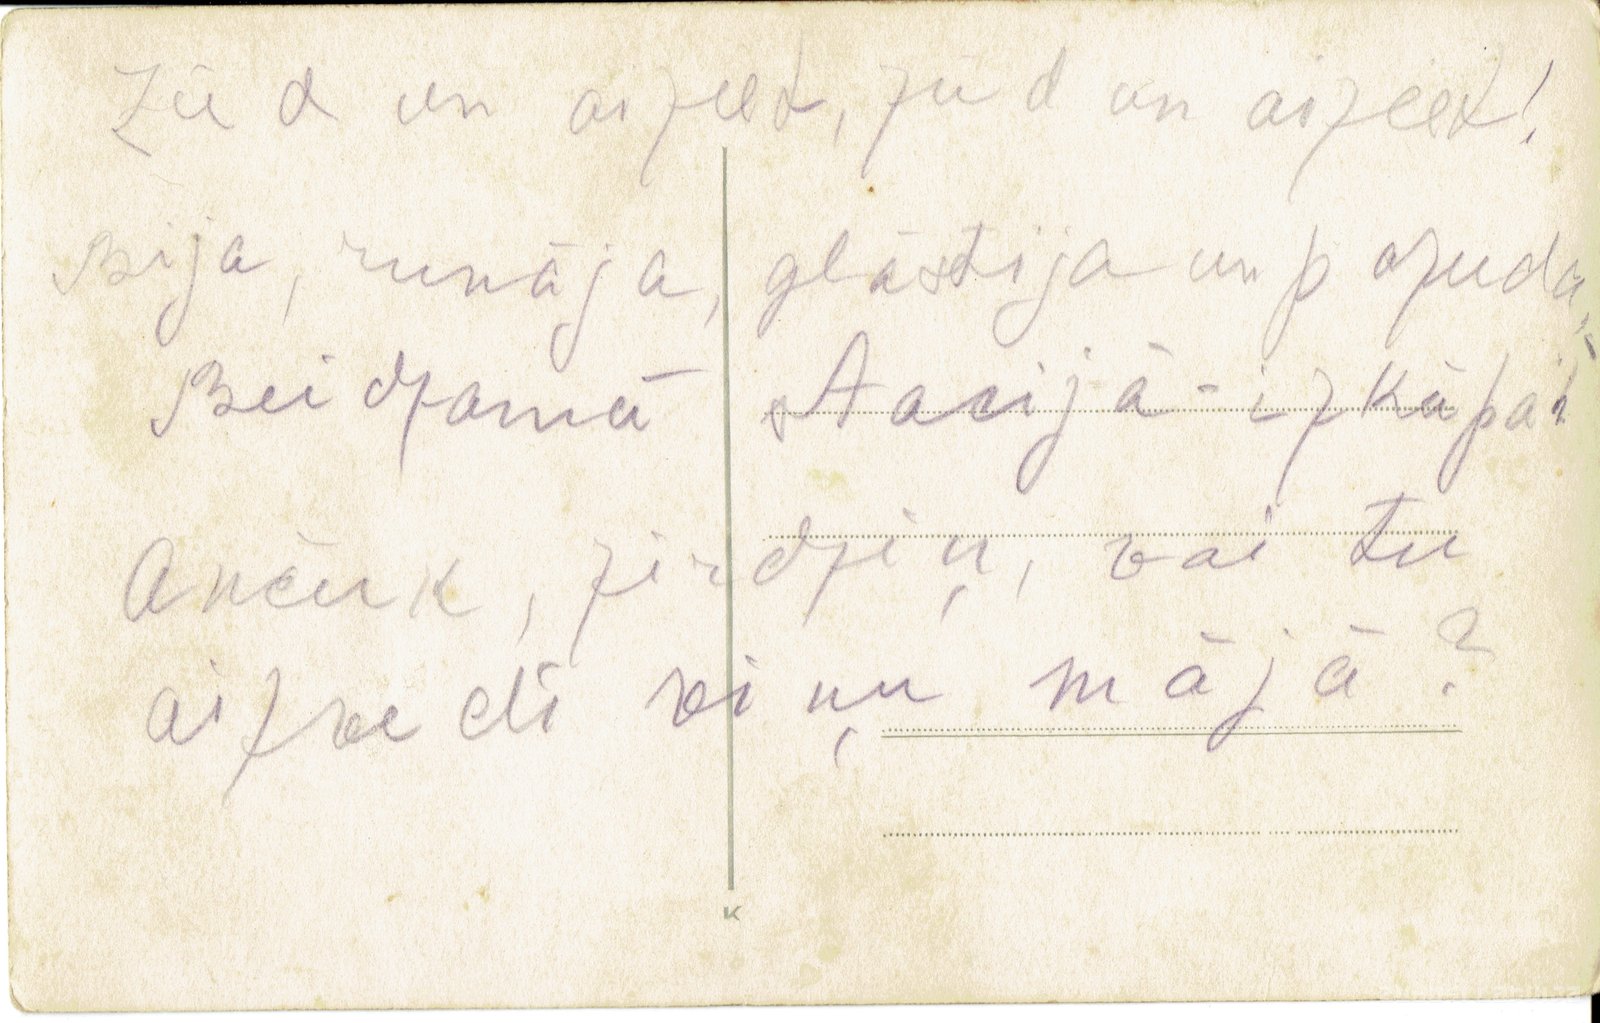 Zūd un aiziet, zūd un aiziet!
Bija, runāja, glāstija un pazuda,
Beidzamā stacijā - izkāpa!
Ančuk, zirdziņ, vai tu
aizvedi viņu mājā?
K